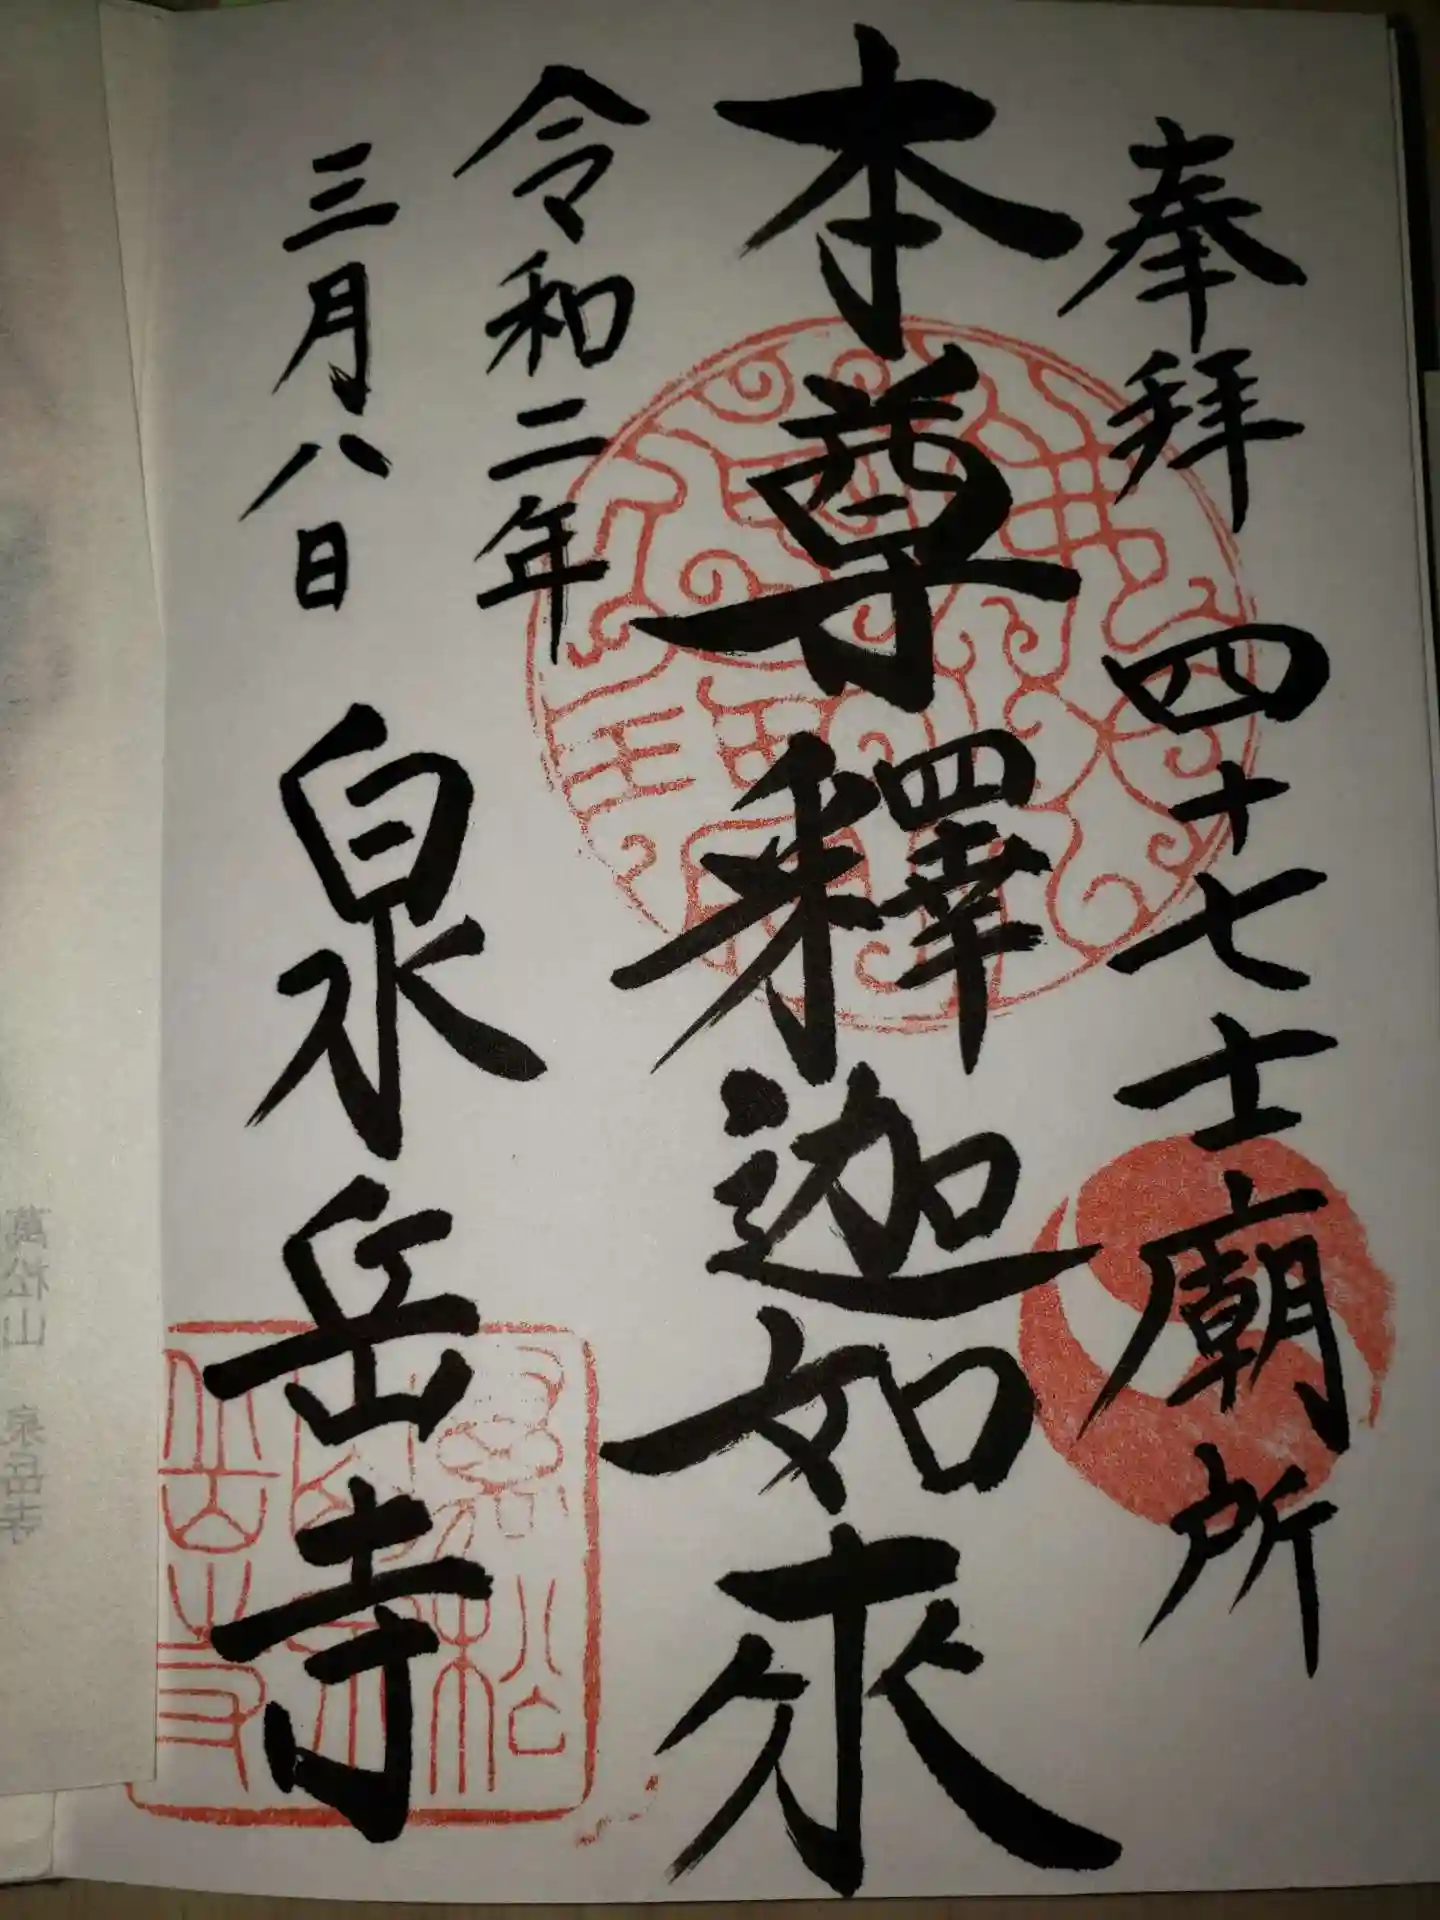 奉拜 四十七士廟所
本尊釋迦如來
令和二年
三月八日
泉岳寺
萬松山 泉岳寺